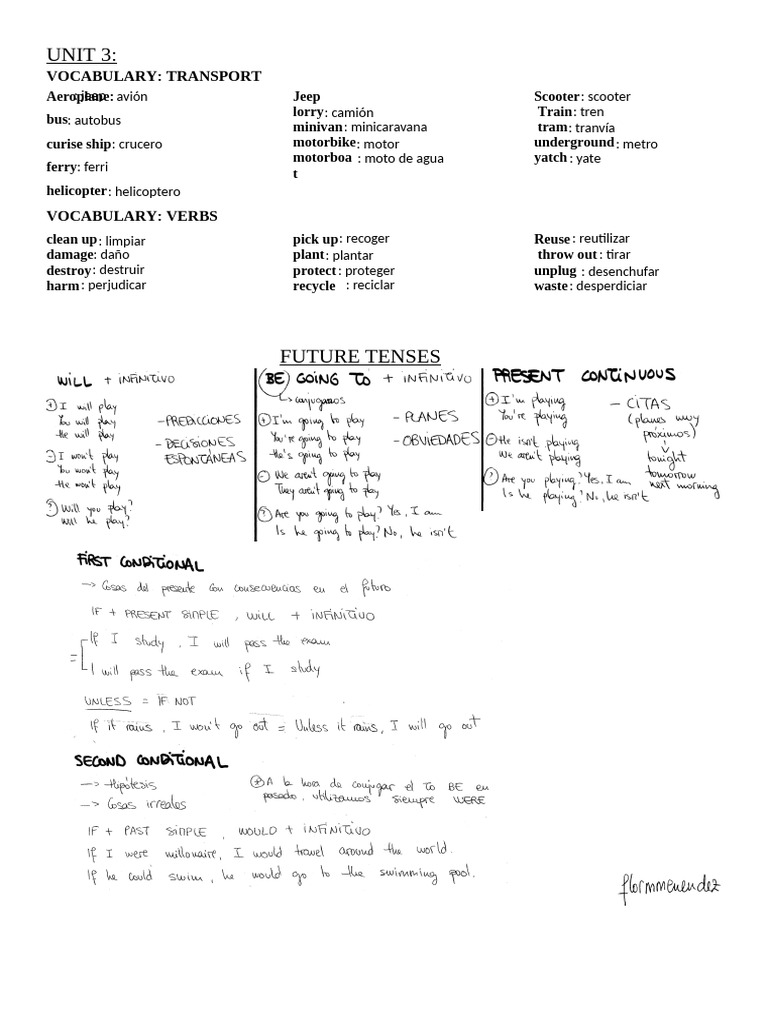 UNIT 3:
VOCABULARY: TRANSPORT
Aeroplane: avión
bus: autobus
curise ship: crucero
ferry: ferri
helicopter: helicoptero
Jeep : jeep
lorry: camión
minivan: minicaravana
motorbike: motor
motorboat : moto de agua
Scooter: scooter
Train: tren
tram: tranvía
underground: metro
yatch: yate
VOCABULARY: VERBS
clean up: limpiar
damage: daño
destroy: destruir
harm: perjudicar
pick up: recoger
plant: plantar
protect: proteger
recycle : reciclar
Reuse: reutilizar
throw out: tirar
unplug : desenchufar
waste: desperdiciar
FUTURE TENSES
WILL + INFINITIVO
+ I will play
You will play
He will play
- I won't play
You won't play
He won't play
? Will you play?
Will he play?
- PREDICCIONES
- DECISIONES
ESPONTÁNEAS
BE GOING TO + INFINITIVO
conjugamos
+ I'm going to play
You're going to play
He's going to play
- We aren't going to play
They aren't going to play
? Are you going to play? Yes, I am
Is he going to play? No, he isn't
- PLANES
- OBVIEDADES
PRESENT CONTINUOUS
+ I'm playing
You're playing
- He isn't playing
We aren't playing
? Are you playing? Yes, I am
Is he playing? No, he isn't
- CITAS
(planes muy
próximos)
tonight
tomorrow
next morning
FIRST CONDITIONAL
→ Cosas del presente con consecuencias en el futuro
IF + PRESENT SIMPLE, WILL + INFINITIVO
= If I study, I will pass the exam
I will pass the exam if I study
UNLESS = IF NOT
If it rains, I won't go out = Unless it rains, I will go out
SECOND CONDITIONAL
→ Hipótesis
→ Cosas irreales
* A la hora de conjugar el TO BE en
pasado, utilizamos siempre WERE
IF + PAST SIMPLE, WOULD + INFINITIVO
If I were millonaire, I would travel around the world.
If he could swim, he would go to the swimming pool.
flormmenendez